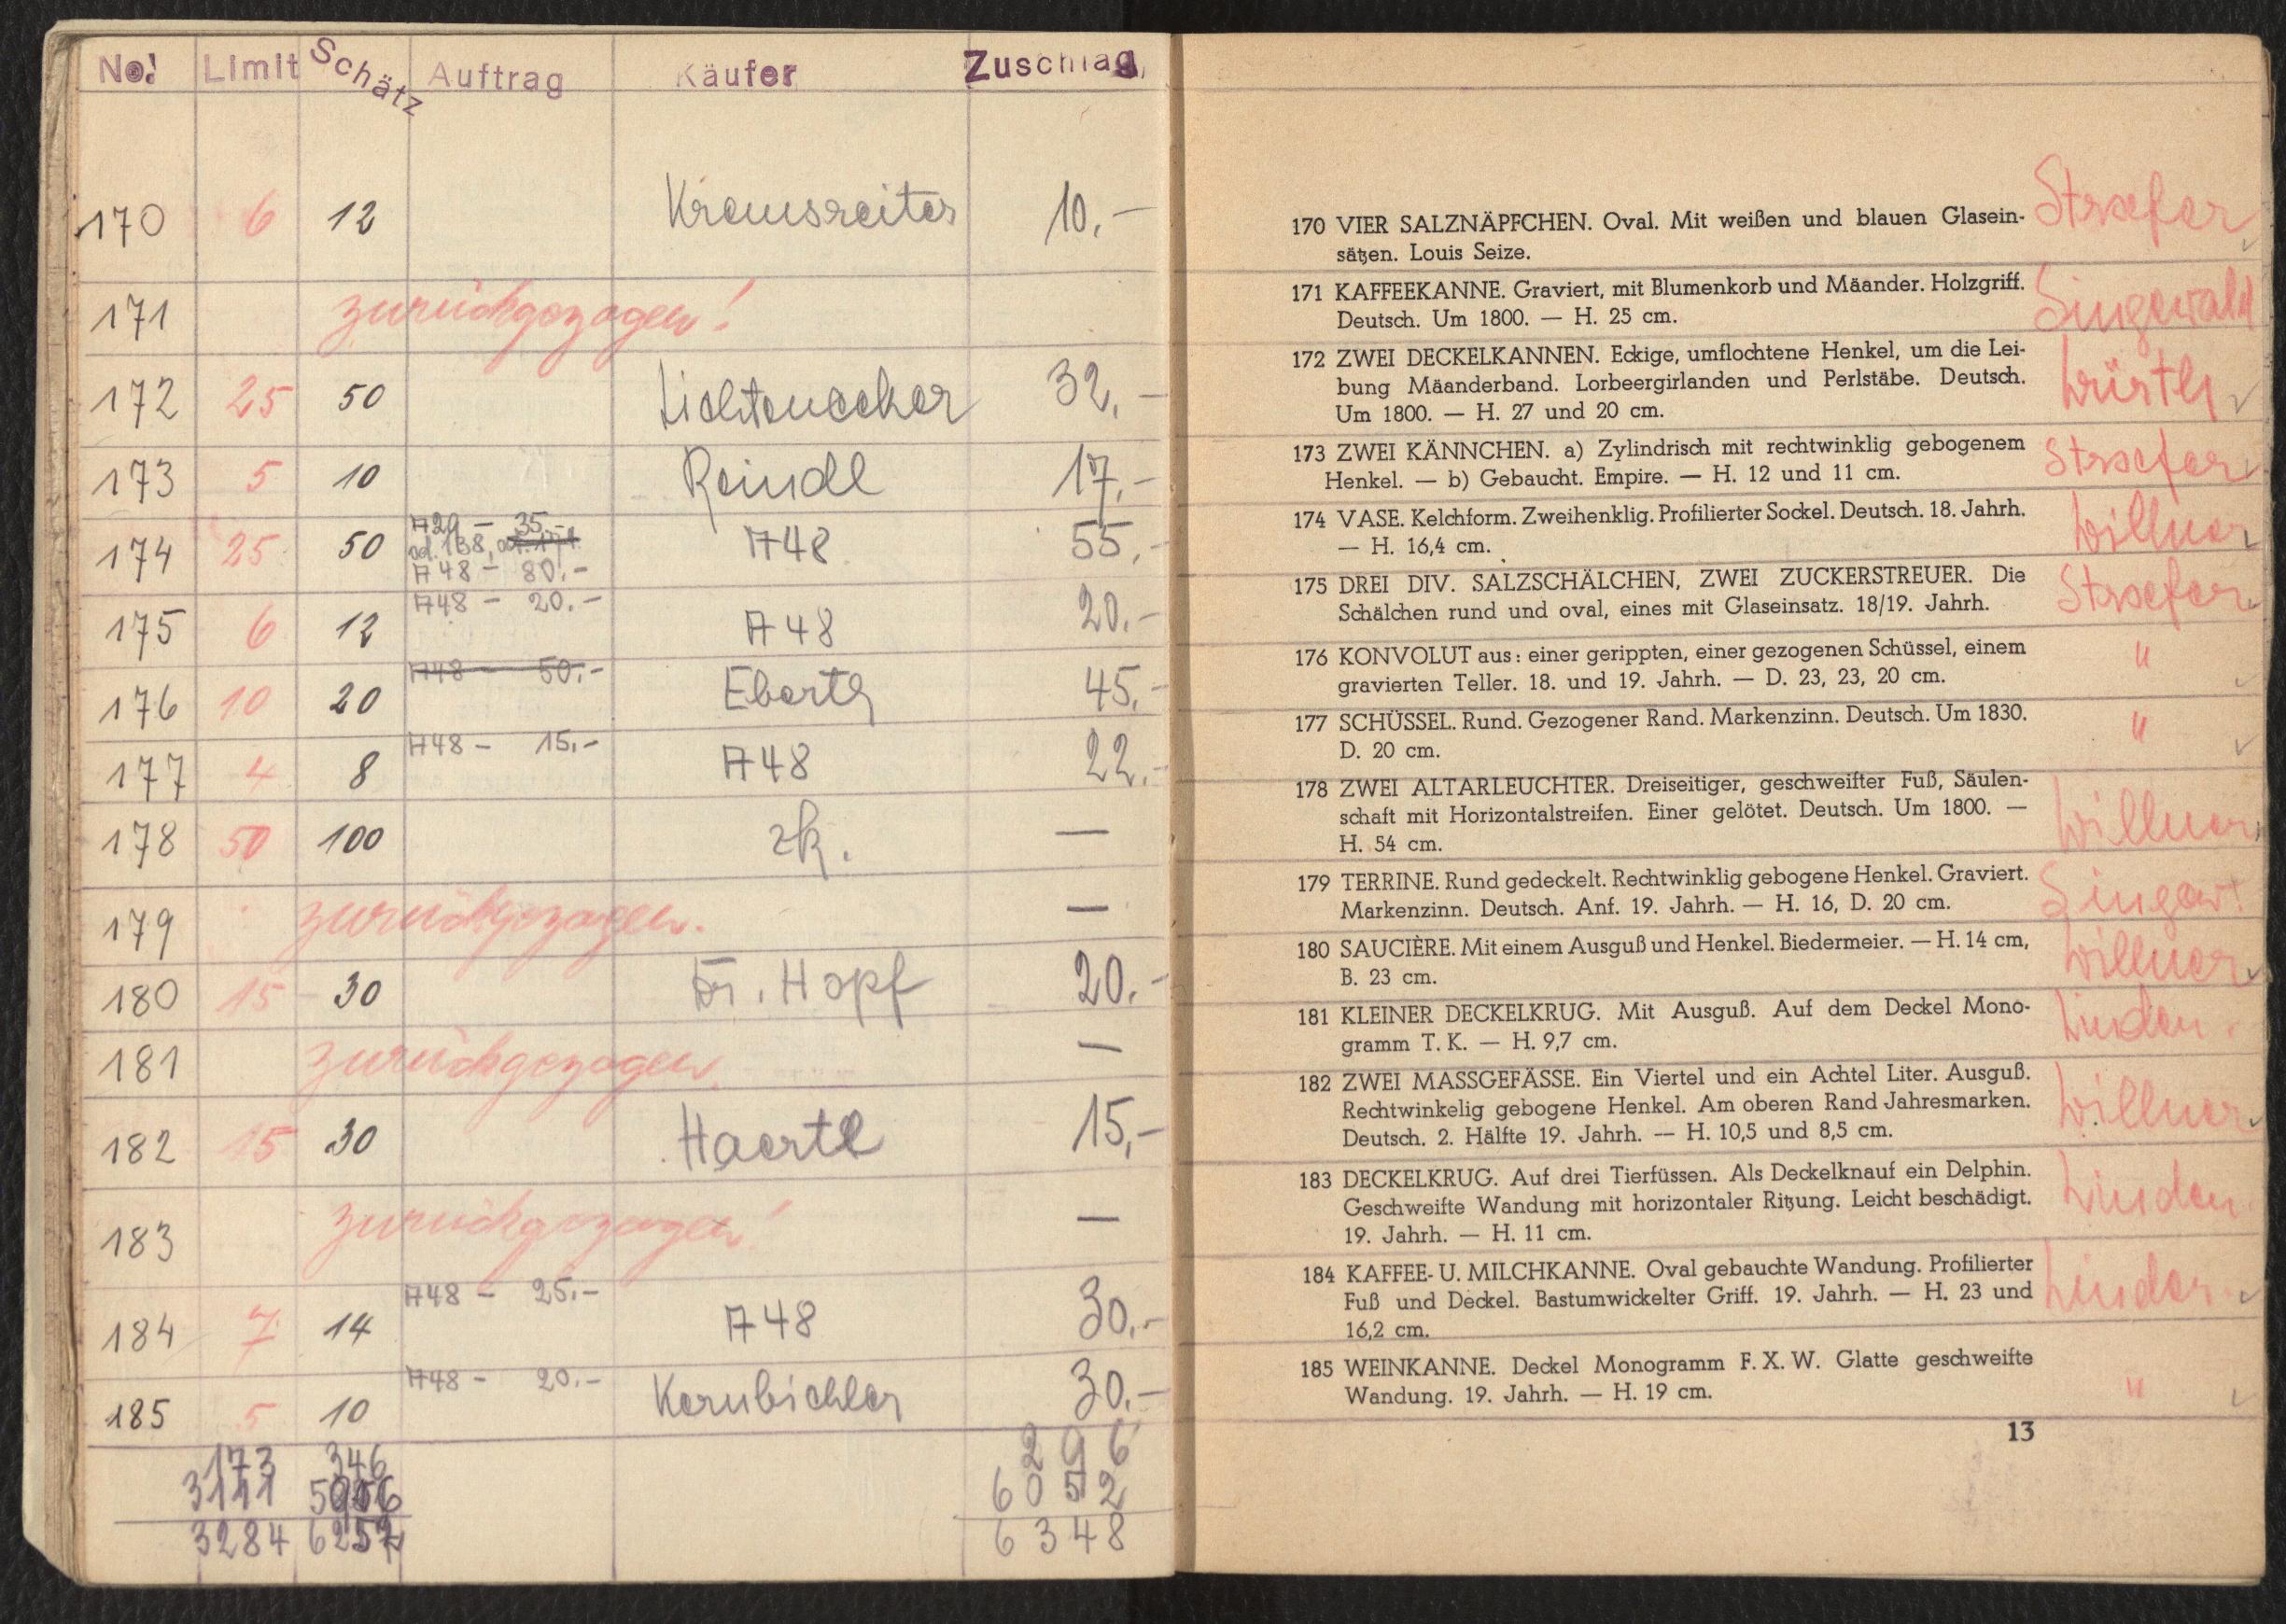 No! Limit Schätz Auftrag Käufer Zuschlag
170 6 12 Kremsreiter 10.-
171 zurückgezogen!
172 25 50 Lichtenecker 32.-
173 5 10 Reindl 17.-
174 25 50 A48 55.-
A48 - 80.-
175 6 12 A48 - 20.- A48 20.-
176 10 20 A48 - 50.- Eberth 45.-
177 4 8 A48 - 15.- A48 22.-
178 50 100 zk. —
179 zurückgezogen. —
180 15 30 Dr. Hopf 20.-
181 zurückgezogen. —
182 15 30 Haertl 15,-
183 zurückgezogen! —
184 7 14 A48 - 25.- A48 30.-
185 5 10 A48 - 20.- Kernbichler 30.-
173 346 296
3111 6052
3284 6348
170 VIER SALZNÄPFCHEN. Oval. Mit weißen und blauen Glasein- Straefer
sätzen. Louis Seize.
171 KAFFEEKANNE. Graviert, mit Blumenkorb und Mäander. Holzgriff. Singewald
Deutsch. Um 1800. — H. 25 cm.
172 ZWEI DECKELKANNEN. Eckige, umflochtene Henkel, um die Lei-
bung Mäanderband. Lorbeergirlanden und Perlstäbe. Deutsch. Würth
Um 1800. — H. 27 und 20 cm.
173 ZWEI KÄNNCHEN. a) Zylindrisch mit rechtwinklig gebogenem Straefer
Henkel. — b) Gebaucht. Empire. — H. 12 und 11 cm.
174 VASE. Kelchform. Zweihenklig. Profilierter Sockel. Deutsch. 18. Jahrh. Willner
— H. 16,4 cm.
175 DREI DIV. SALZSCHÄLCHEN, ZWEI ZUCKERSTREUER. Die Straefer
Schälchen rund und oval, eines mit Glaseinsatz. 18/19. Jahrh.
176 KONVOLUT aus: einer gerippten, einer gezogenen Schüssel, einem "
gravierten Teller. 18. und 19. Jahrh. — D. 23, 23, 20 cm.
177 SCHÜSSEL. Rund. Gezogener Rand. Markenzinn. Deutsch. Um 1830. "
D. 20 cm.
178 ZWEI ALTARLEUCHTER. Dreiseitiger, geschweifter Fuß, Säulen-
schaft mit Horizontalstreifen. Einer gelötet. Deutsch. Um 1800. — Willner
H. 54 cm.
179 TERRINE. Rund gedeckelt. Rechtwinklig gebogene Henkel. Graviert. Singew.
Markenzinn. Deutsch. Anf. 19. Jahrh. — H. 16, D. 20 cm.
180 SAUCIÈRE. Mit einem Ausguß und Henkel. Biedermeier. — H. 14 cm, Willner
B. 23 cm.
181 KLEINER DECKELKRUG. Mit Ausguß. Auf dem Deckel Mono- Linden.
gramm T. K. — H. 9,7 cm.
182 ZWEI MASSGEFÄSSE. Ein Viertel und ein Achtel Liter. Ausguß.
Rechtwinkelig gebogene Henkel. Am oberen Rand Jahresmarken. Willner
Deutsch. 2. Hälfte 19. Jahrh. — H. 10,5 und 8,5 cm.
183 DECKELKRUG. Auf drei Tierfüssen. Als Deckelknauf ein Delphin.
Geschweifte Wandung mit horizontaler Ritzung. Leicht beschädigt. Linden.
19. Jahrh. — H. 11 cm.
184 KAFFEE- U. MILCHKANNE. Oval gebauchte Wandung. Profilierter
Fuß und Deckel. Bastumwickelter Griff. 19. Jahrh. — H. 23 und
16,2 cm.
185 WEINKANNE. Deckel Monogramm F. X. W. Glatte geschweifte "
Wandung. 19. Jahrh. — H. 19 cm.
13